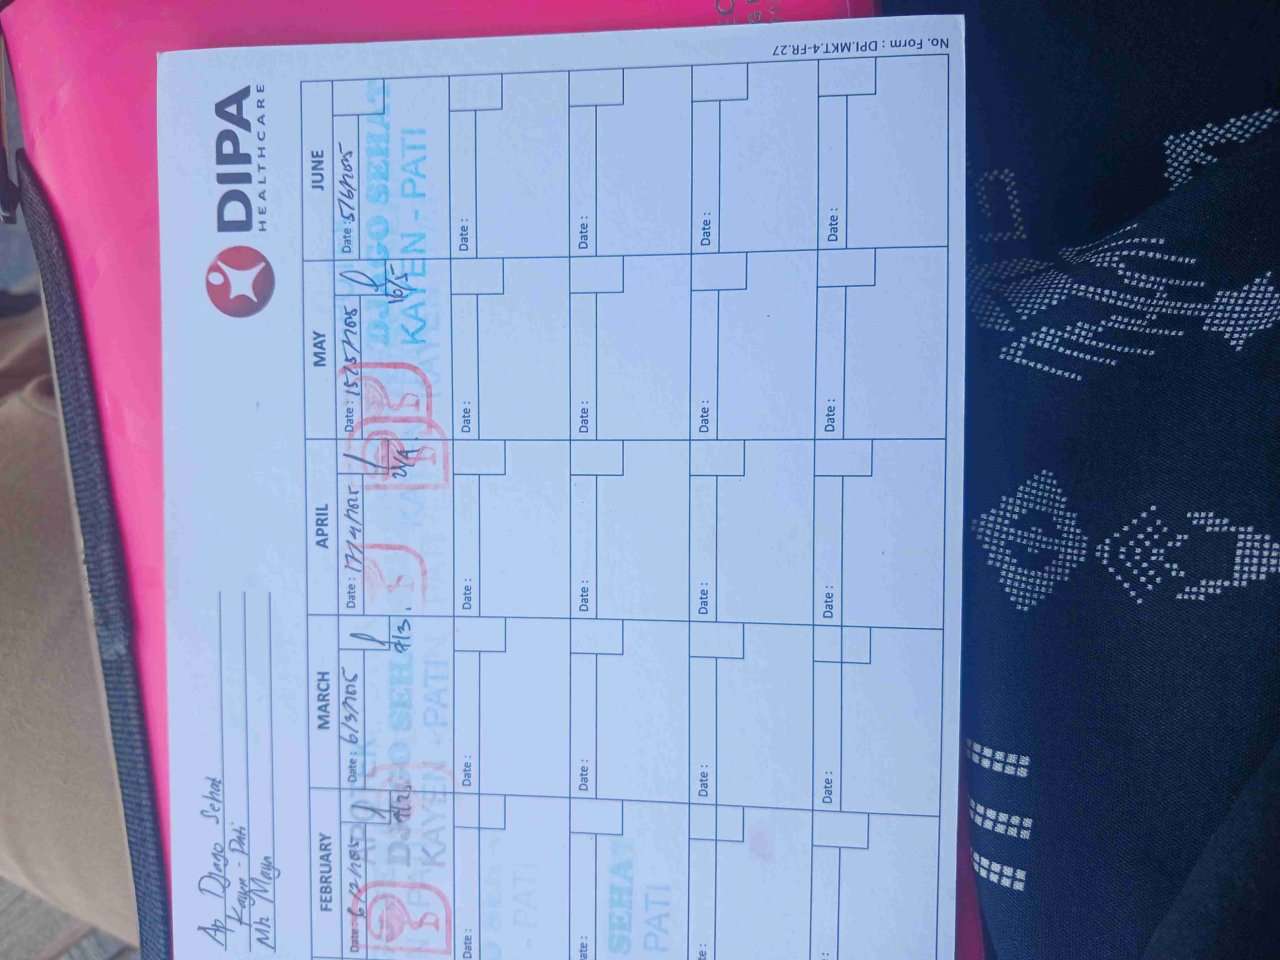 DIPA
HEALTHCARE
Ap Djago Sehat
Kayen - Pati
Mh Maya
FEBRUARY MARCH APRIL MAY JUNE
Date : 6/2/2025 Date : 6/3/2025 Date : 17/4/2025 Date : 15/5/2025 Date : 5/6/2025
9/3 21/4 16/5
DJAGO SEHAT
KAYEN - PATI
DJAGO SEHAT
KAYEN - PATI
Date : Date : Date : Date : Date :
- PATI
Date : Date : Date : Date :
SEHAT
PATI
Date : Date : Date : Date :
Date : Date : Date : Date :
No. Form : DPI.MKT.4-FR.27